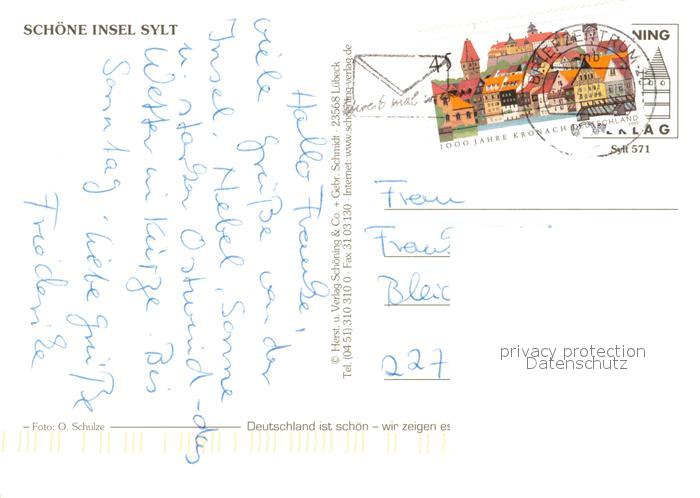 SCHÖNE INSEL SYLT
Hallo
viele Grüße von der
Insel. Nebel, Sonne
u. starker Ostwind - das
Wetter in Kürze. Bis
Sonntag, liebe Grüße
Friederike
© Herst. u. Verlag Schöning & Co. + Gebr. Schmidt · 23568 Lübeck
Tel. (04 51) 310 310 0 · Fax 31 03 130 · Internet: www.schoening-verlag.de
45
1000 JAHRE KRONACH
DEUTSCHLAND
BRIEFZENTRUM
mal
NING
VERLAG
Sylt 571
Frau
Blei
227
privacy protection
Datenschutz
– Foto: O. Schulze
Deutschland ist schön – wir zeigen es